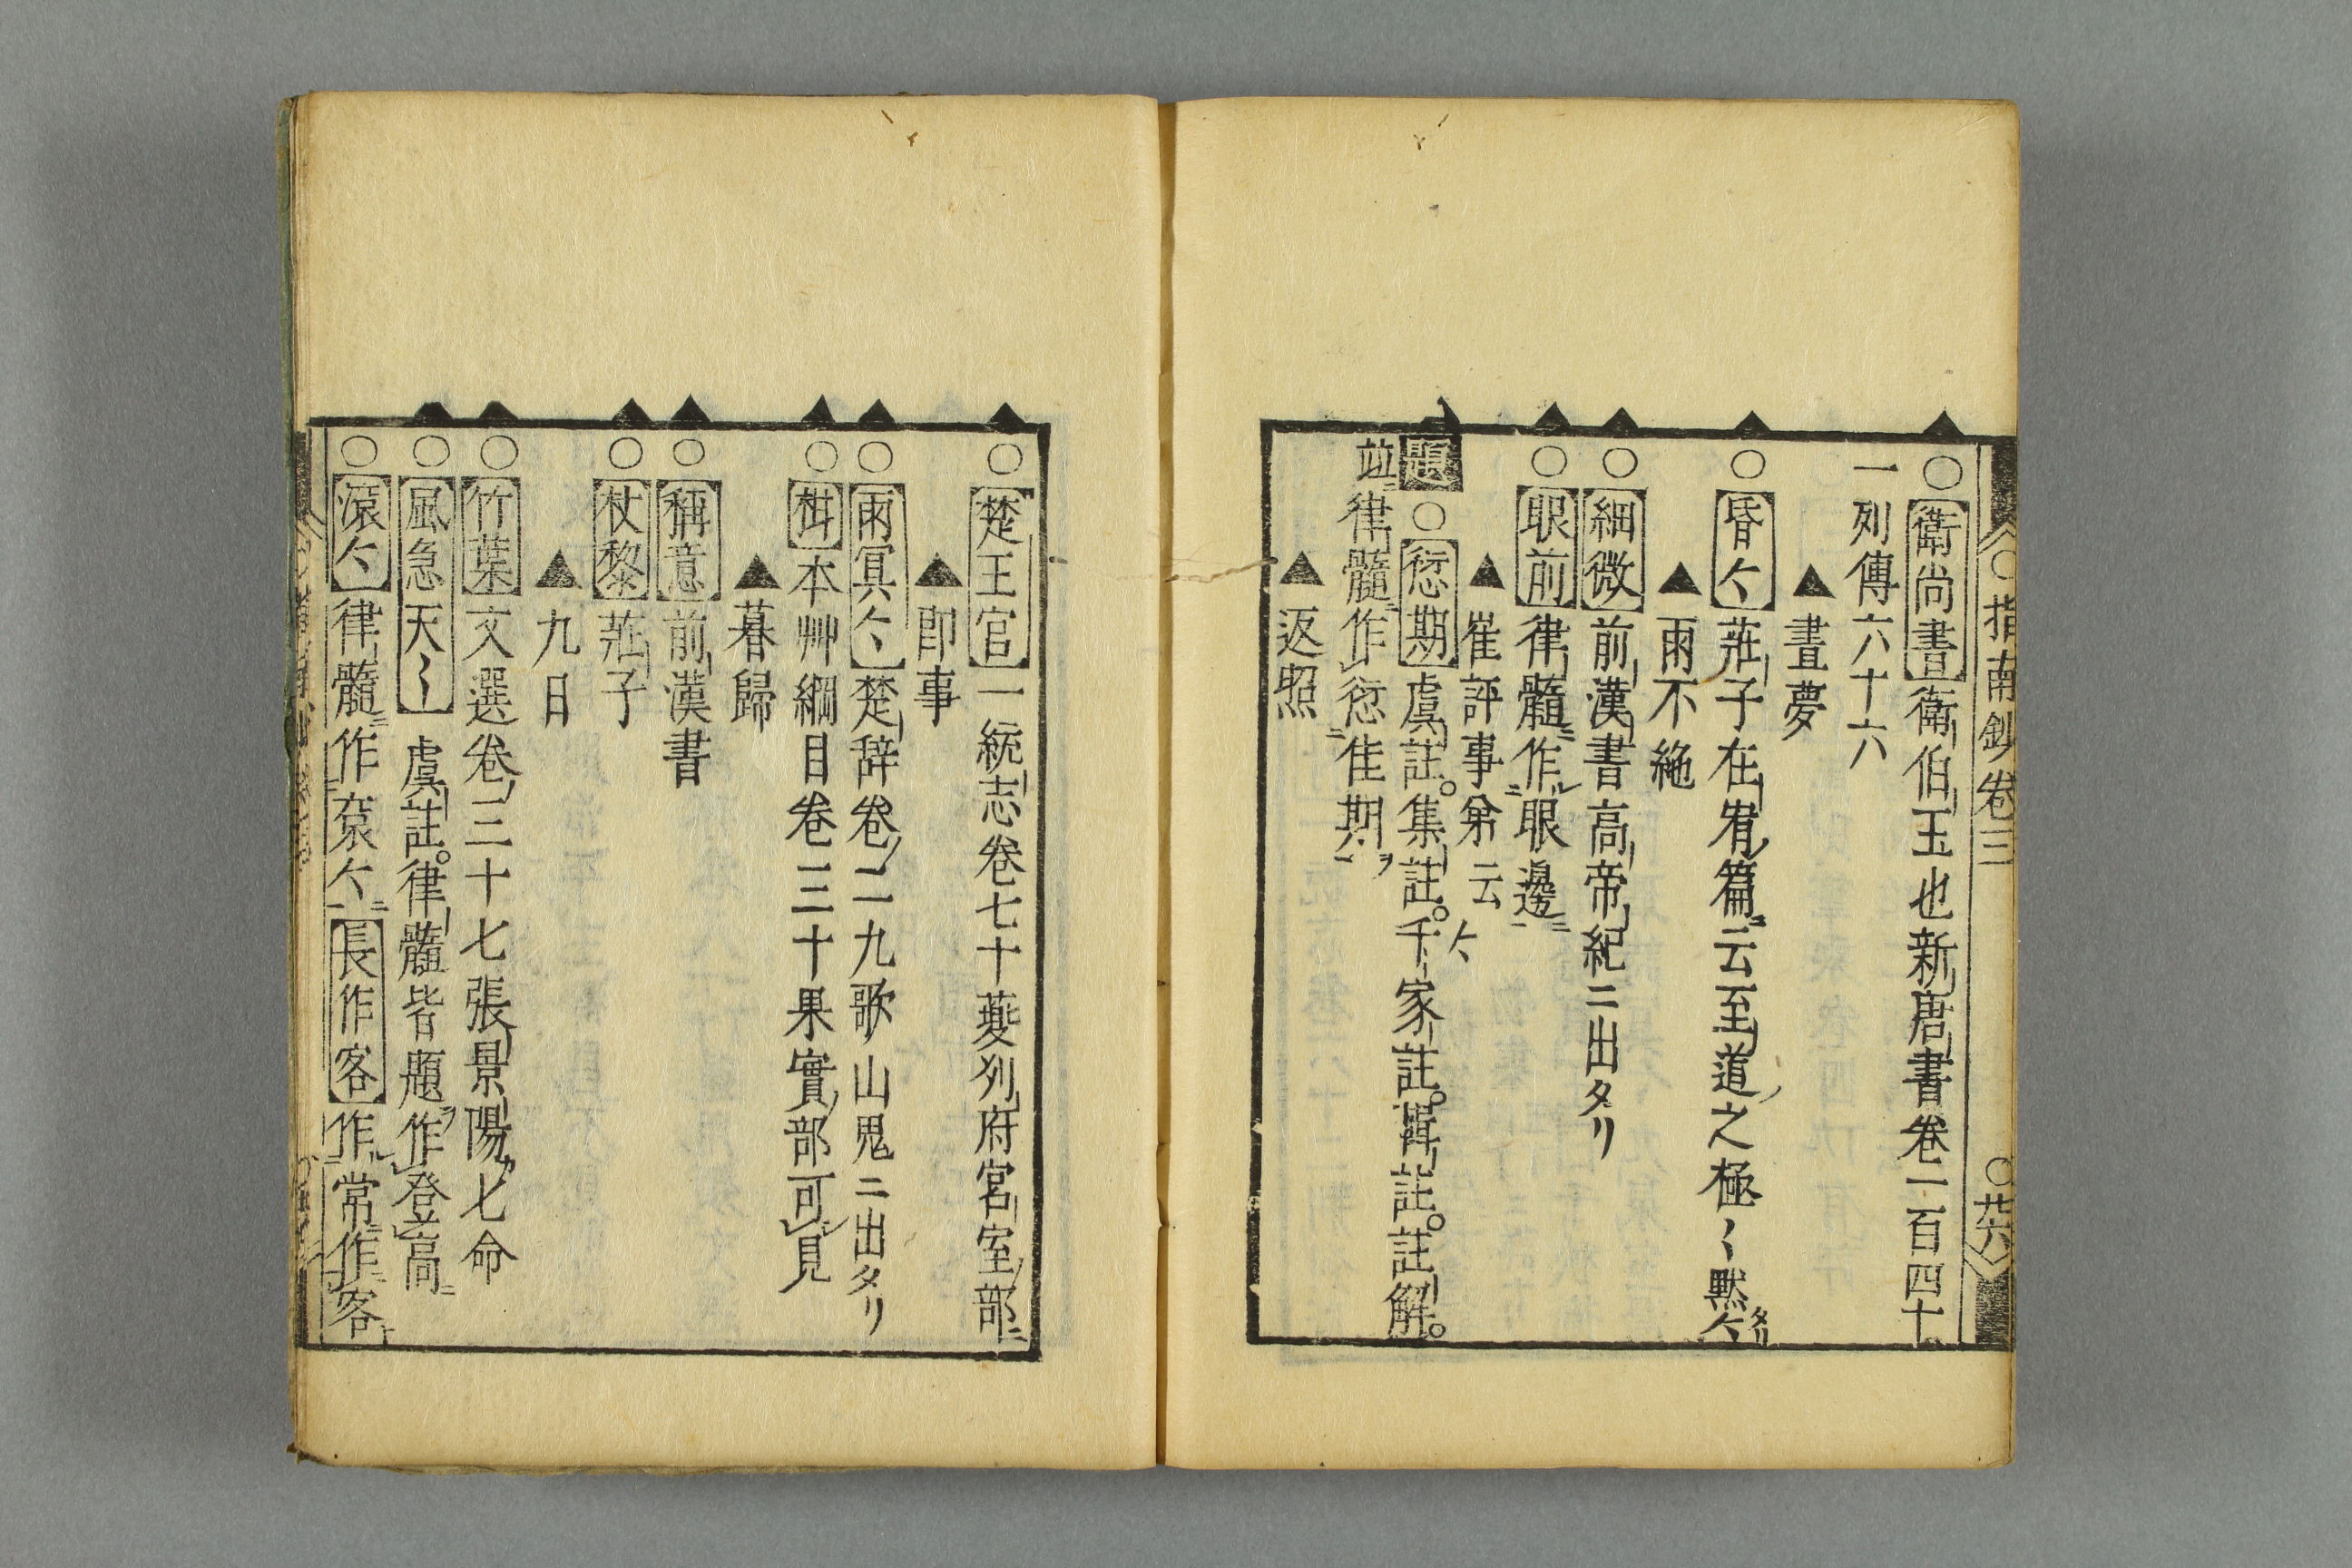 指南鈔卷三 ○廿六
○衞尚書衞伯玉也新唐書卷一百四十
一列傳六十六
▲晝夢
○昏〻莊子在宥篇云至道之極〻默〻タリ
▲雨不絶
○細微前漢書高帝紀ニ出タリ
○眼前律髓作眼邊
▲崔評事弟云〻
題○愆期虞註。集註。千家註。單註。註解。
竝律髓作愆佳期
▲返照
○楚王宮一統志卷七十夔州府宮室部
▲即事
○雨冥〻楚辞卷二九歌山鬼ニ出タリ
○柑本艸綱目卷三十果實部可見
▲暮歸
○稱意前漢書
○杖黎莊子
▲九日
○竹葉文選卷三十七張景陽七命
○風急天〻虞註。律髓皆題作登高
○滾〻律髓作袞〻長作客作常作客